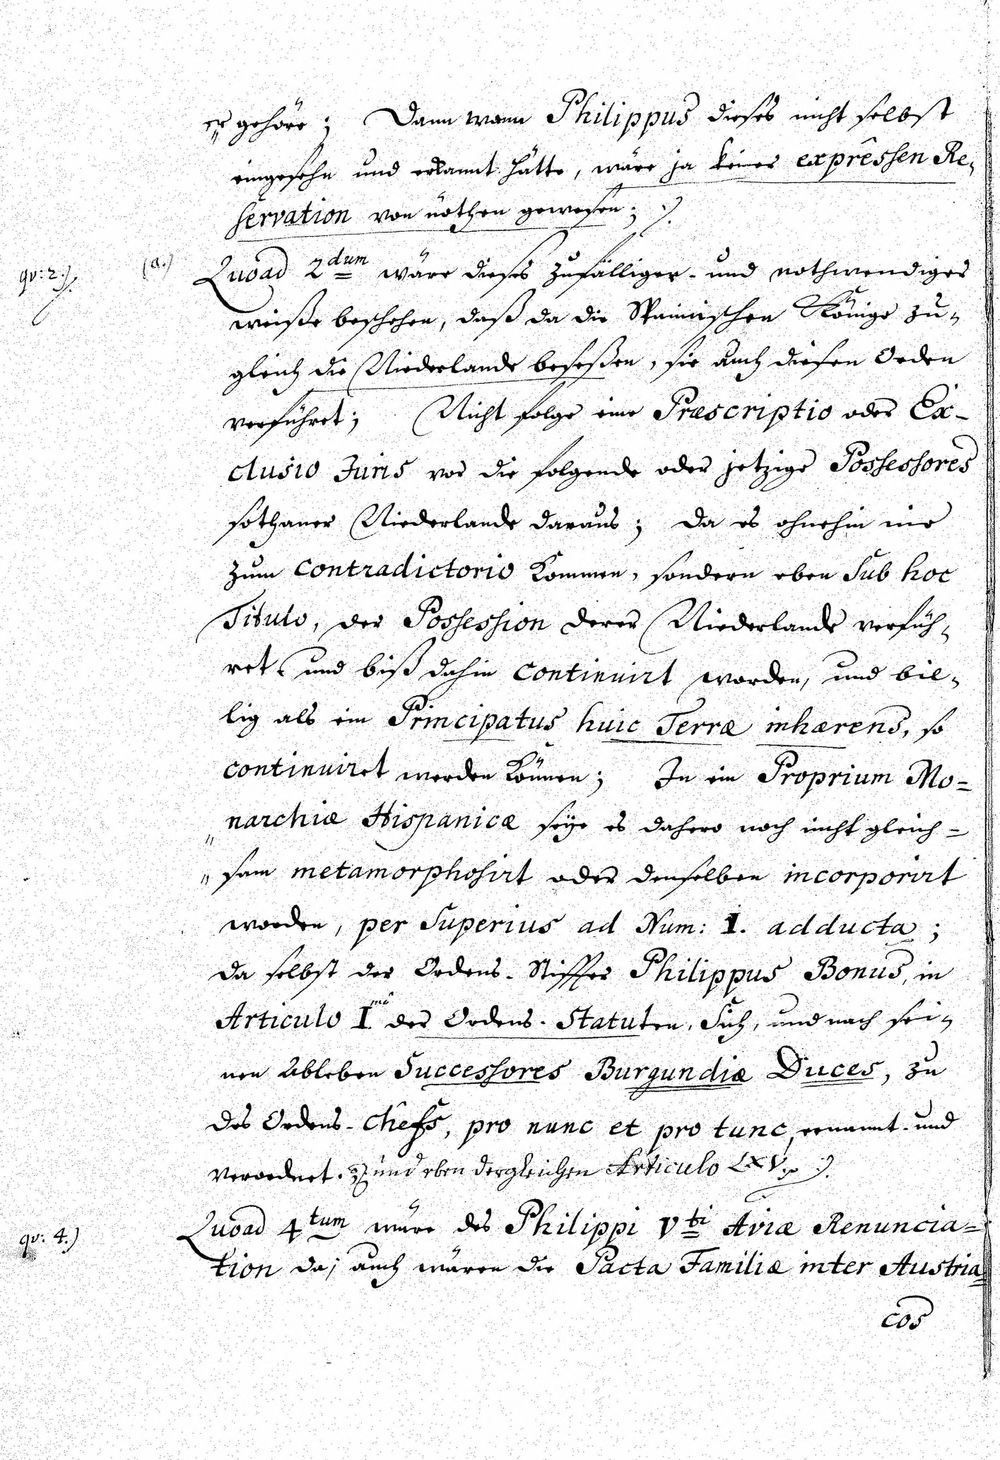 er gehöre; Dann wann Philippus dieses nicht selbst
eingesehn und erkannt hätte, wäre ja keines expressen Re-
servation von nöthen gewesen; :/.
qv: 2.) (a.) Quoad 2dum wäre dieses zufälliger- und nothwendiger
weiße beschehen, daß da die Spannischen Könige zu-
gleich die Niederlande beseßen, sie auch diesen Orden
verführet; Nicht folge eine Præscriptio oder Ex-
clusio Juris vor die folgende oder jetzige Possessores
sothaner Niederlande daraus; da es ohnehin nie
zum contradictorio kommen, sondern eben sub hoc
Titulo, der Possession derer Niederlande verfüh-
ret und biß dahin continuirt worden, und bil-
lig als ein Principatus huic Terræ inhærens, so
continuiret werden können; In ein Proprium Mo-
narchiæ Hispanicæ seye es dahero noch nicht gleich-
sam metamorphosirt oder demselben incorporirt
worden, per superius ad Num: I. adducta;
da selbst der Ordens-Stiffter Philippus Bonus, in
Articulo Imo der Ordens-Statuten, Sich, und nach sei-
nen Ableben Successores Burgundiæ Duces, zu
des Ordens-Chefs, pro nunc et pro tunc, ernannt- und
verordnet. und eben dergleichen Articulo LXV. :/.
qv: 4.) Quoad 4tum wäre des Philippi Vti Aviæ Renuncia-
tion da; auch wären die Pacta Familiæ inter Austria-
cos